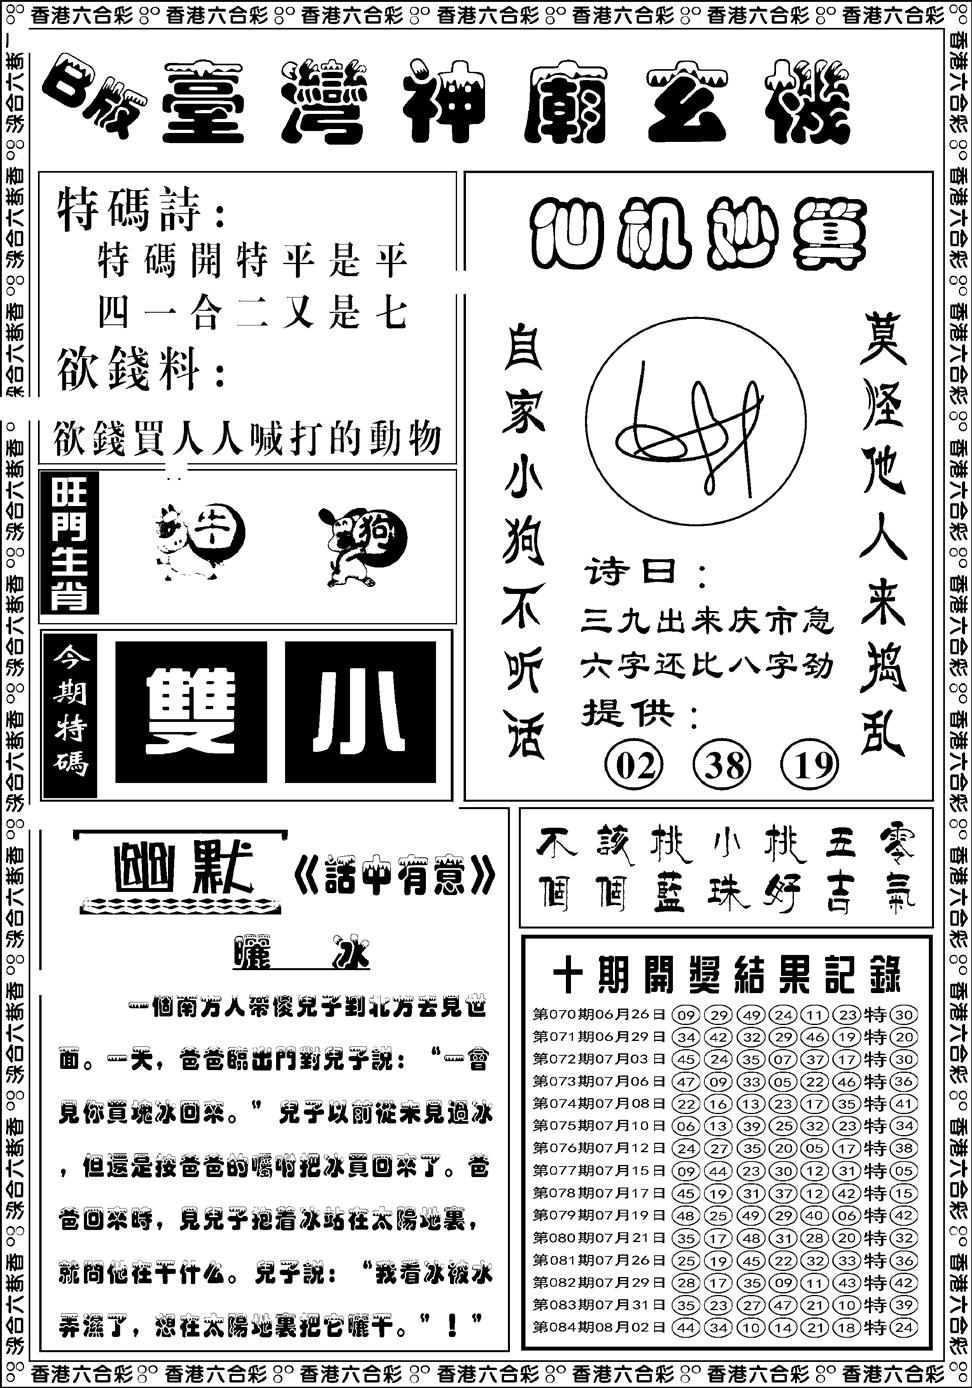 香港六合彩 香港六合彩 香港六合彩 香港六合彩 香港六合彩 香港六合彩 香港六合彩
B版 臺灣神廟玄機
特碼詩:
特碼開特平是平
四一合二又是七
欲錢料:
欲錢買人人喊打的動物
旺門生肖
牛 狗
今期特碼
雙 小
仙机妙算
自家小狗不听话
莫怪他人来捣乱
诗曰:
三九出来庆市急
六字还比八字劲
提供:
02 38 19
幽默 《話中有意》
曬 冰
一個南方人帶傻兒子到北方去見世
面。一天，爸爸臨出門對兒子說：“一會
見你買塊冰回來。”兒子以前從未見過冰
，但還是按爸爸的囑咐把冰買回來了。爸
爸回來時，見兒子抱着冰站在太陽地裏，
就問他在干什么。兒子說：“我看冰被水
弄濕了，想在太陽地裏把它曬干。”！”
不該桃小桃五零
個個藍珠好吉氣
十期開獎結果記錄
第070期06月26日 09 29 49 24 11 23 特 30
第071期06月29日 34 42 32 29 46 19 特 20
第072期07月03日 45 24 35 07 37 17 特 30
第073期07月06日 47 09 33 05 22 46 特 36
第074期07月08日 22 16 13 23 17 35 特 41
第075期07月10日 06 13 39 25 32 23 特 34
第076期07月12日 24 27 35 20 05 17 特 38
第077期07月15日 09 44 23 30 12 31 特 05
第078期07月17日 45 19 31 37 12 42 特 15
第079期07月19日 48 25 49 29 40 06 特 42
第080期07月21日 35 17 48 31 28 20 特 32
第081期07月26日 25 19 45 22 32 33 特 36
第082期07月29日 28 17 35 09 11 43 特 42
第083期07月31日 35 23 27 47 21 10 特 39
第084期08月02日 44 34 10 14 21 18 特 24
香港六合彩 香港六合彩 香港六合彩 香港六合彩 香港六合彩 香港六合彩 香港六合彩